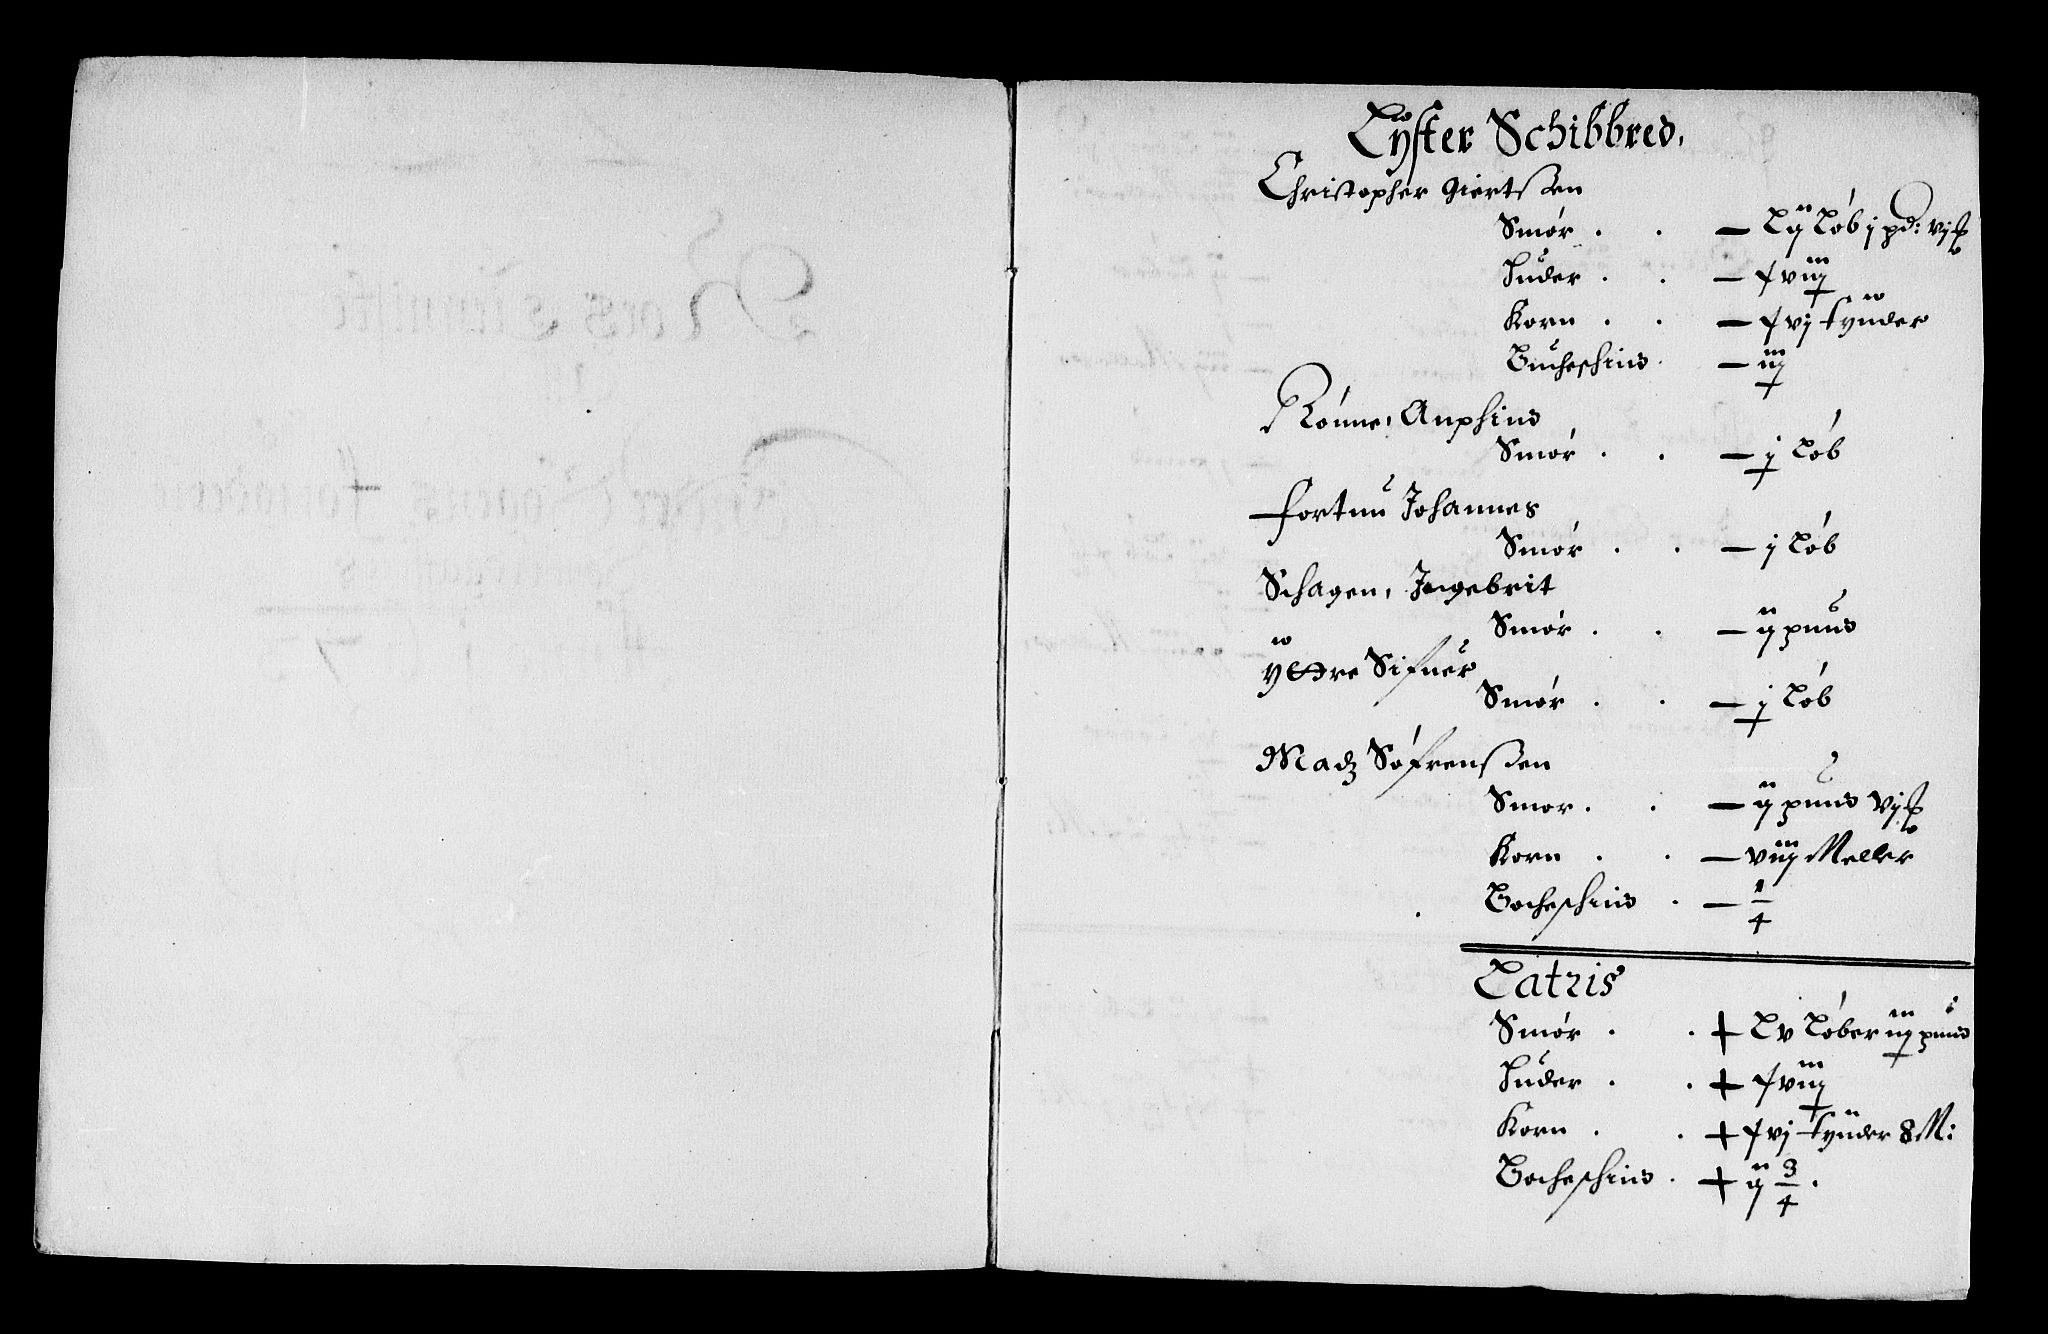 Lyster Schibbred,
Christopher Giertssen
Smør . . — Lij Løb j pd: vj ℔
Huder . . — xviij
Korn . . — xvj tynder
Buckeschind . — iij
Rönne, Anphind
Smør . . — j Løb
Fortun Johannes
Smør . . — j Løb
Schagen, Ingebrit
Smør . . — ij pund
Yttre Sifuer
Smør . . — j Løb
Madz Søfrenssen
Smør . . — ij pund vj ℔
Korn . . — viij Meller
Bocheschind . — 1/4
Latris
Smør . . + Lv Løber iij pund
Huder . . + xviij
Korn . . + xvj tynder 8 M:
Bocheschind . + ij 3/4 .